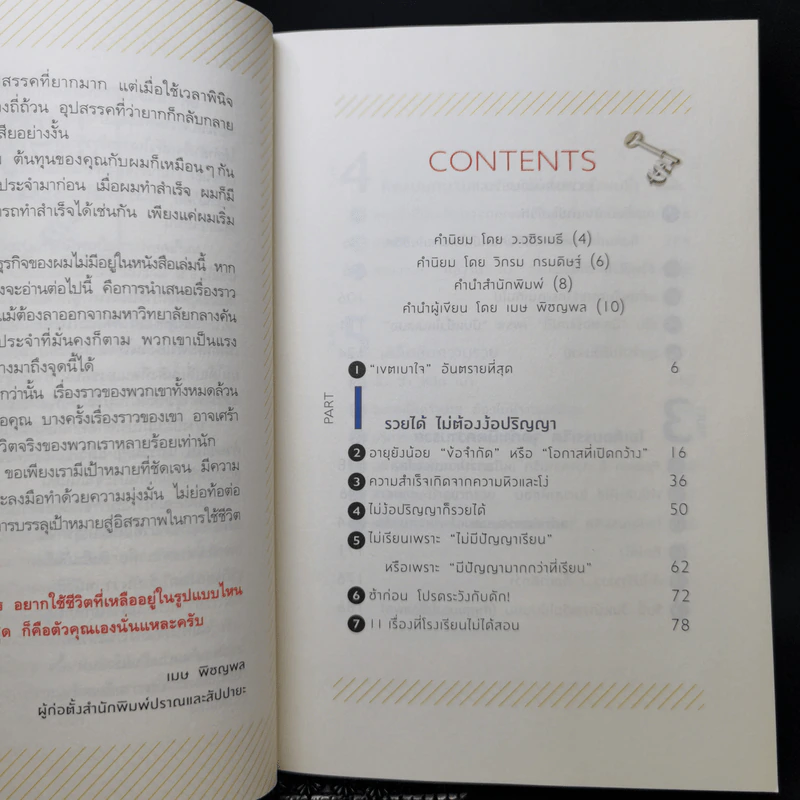 สรรคที่ยากมาก แต่เมื่อใช้เวลาพินิจ
งถี่ถ้วน อุปสรรคที่ว่ายากก็กลับกลาย
สียอย่างงั้น
ต้นทุนของคุณกับผมก็เหมือนๆกัน
ประจำมาก่อน เมื่อผมทำสำเร็จ ผมก็มี
รถทำสำเร็จได้เช่นกัน เพียงแค่ผมเริ่ม
ธุรกิจของผมไม่มีอยู่ในหนังสือเล่มนี้ หาก
งจะอ่านต่อไปนี้ คือการนำเสนอเรื่องราว
แม้ต้องลาออกจากมหาวิทยาลัยกลางคัน
ประจำที่มั่นคงก็ตาม พวกเขาเป็นแรง
างมาถึงจุดนี้ได้
กว่านั้น เรื่องราวของพวกเขาทั้งหมดล้วน
อคุณ บางครั้งเรื่องราวของเขา อาจเศร้า
วิตจริงของพวกเราหลายร้อยเท่านัก
ขอเพียงเรามีเป้าหมายที่ชัดเจน มีความ
ะลงมือทำด้วยความมุ่งมั่น ไม่ย่อท้อต่อ
การบรรลุเป้าหมายสู่อิสรภาพในการใช้ชีวิต
อยากใช้ชีวิตที่เหลืออยู่ในรูปแบบไหน
ด ก็คือตัวคุณเองนั่นแหละครับ
เมษ พิชญพล
ผู้ก่อตั้งสำนักพิมพ์ปราณและสัปปายะ
CONTENTS
คำนิยม โดย ว.วชิรเมธี (4)
คำนิยม โดย วิกรม กรมดิษฐ์ (6)
คำนำสำนักพิมพ์ (8)
คำนำผู้เขียน โดย เมษ พิชญพล (10)
1 "เขตเบาใจ" อันตรายที่สุด 6
PART 1
รวยได้ ไม่ต้องง้อปริญญา
2 อายุยังน้อย "ข้อจำกัด" หรือ "โอกาสที่เปิดกว้าง" 16
3 ความสำเร็จเกิดจากความหิวและโง่ 36
4 ไม่ง้อปริญญาก็รวยได้ 50
5 ไม่เรียนเพราะ "ไม่มีปัญญาเรียน"
หรือเพราะ "มีปัญญามากกว่าที่เรียน" 62
6 ช้าก่อน โปรดระวังกับดัก! 72
7 11 เรื่องที่โรงเรียนไม่ได้สอน 78